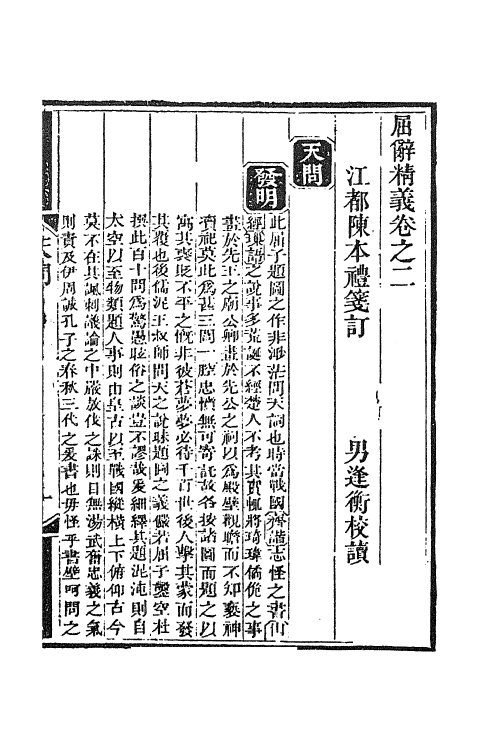 屈辭精義卷之二
江都陳本禮箋訂　男逢衡校讀
天問
發明
此屈子題圖之作非渺茫問天詞也時當戰國齊諧志怪之書山
經瑣語之說事多荒誕不經楚人不考其實輒將琦瑋僑佹之事
畫於先王之廟公卿畫於先公之祠以爲殿壁觀瞻而不知褻神
瀆祀莫此爲甚三閭一腔忠憤無可寄託故各按諸圖而題之以
寓其哀貶不平之慨非彼蒼夢夢必待千百世後人擊其蒙而發
其覆也後儒泥王叔師問天之說昧題圖之義儼若屈子鑿空杜
撰此百十問爲驚愚眩俗之談豈不謬哉爰細繹其題泥沌則自
太空以至物類題人事則由皇古以至戰國縱橫上下俯仰古今
莫不在其諷刺議論之中嚴放伐之誅則目無湯武奮忠義之氣
則責及伊周誠孔子之春秋三代之爰書也毋怪乎書壁呵問之
天問